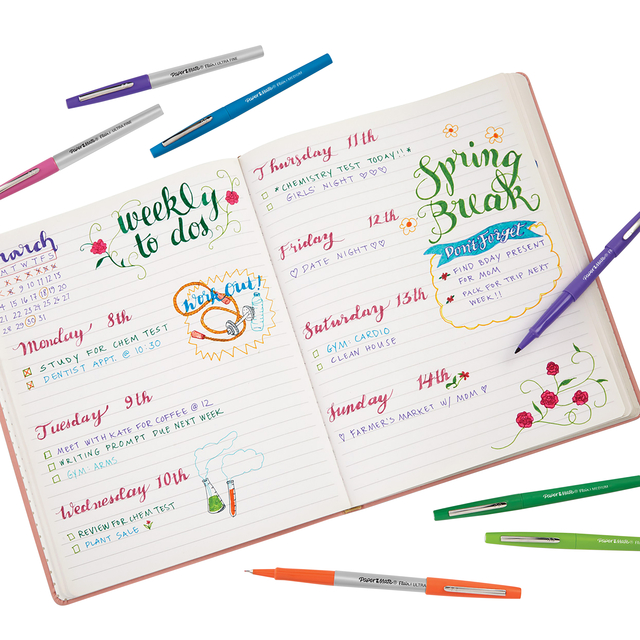 Paper Mate® Flair ULTRA FINE
Paper Mate® Flair MEDIUM
Paper Mate® Flair ULTRA FINE
march
M T W T F S
weekly
to dos
Monday 8th
STUDY FOR CHEM TEST
DENTIST APPT. @ 10:30
WORK OUT!
Tuesday 9th
MEET WITH KATE FOR COFFEE @ 12
WRITING PROMPT DUE NEXT WEEK
GYM: ARMS
Wednesday 10th
REVIEW FOR CHEM TEST
PLANT SALE
Thursday 11th
*CHEMISTRY TEST TODAY!!*
GIRLS' NIGHT ♡♡♡
Friday 12th
♡ DATE NIGHT ♡
Saturday 13th
GYM: CARDIO
CLEAN HOUSE
Sunday 14th
♡ FARMER'S MARKET W/ MOM ♡
Spring
Break
Don't Forget
FIND BDAY PRESENT
FOR MOM
PACK FOR TRIP NEXT
WEEK!!
Paper Mate® Flair MEDIUM
Paper Mate® Flair
Paper Mate® Flair ULTRA